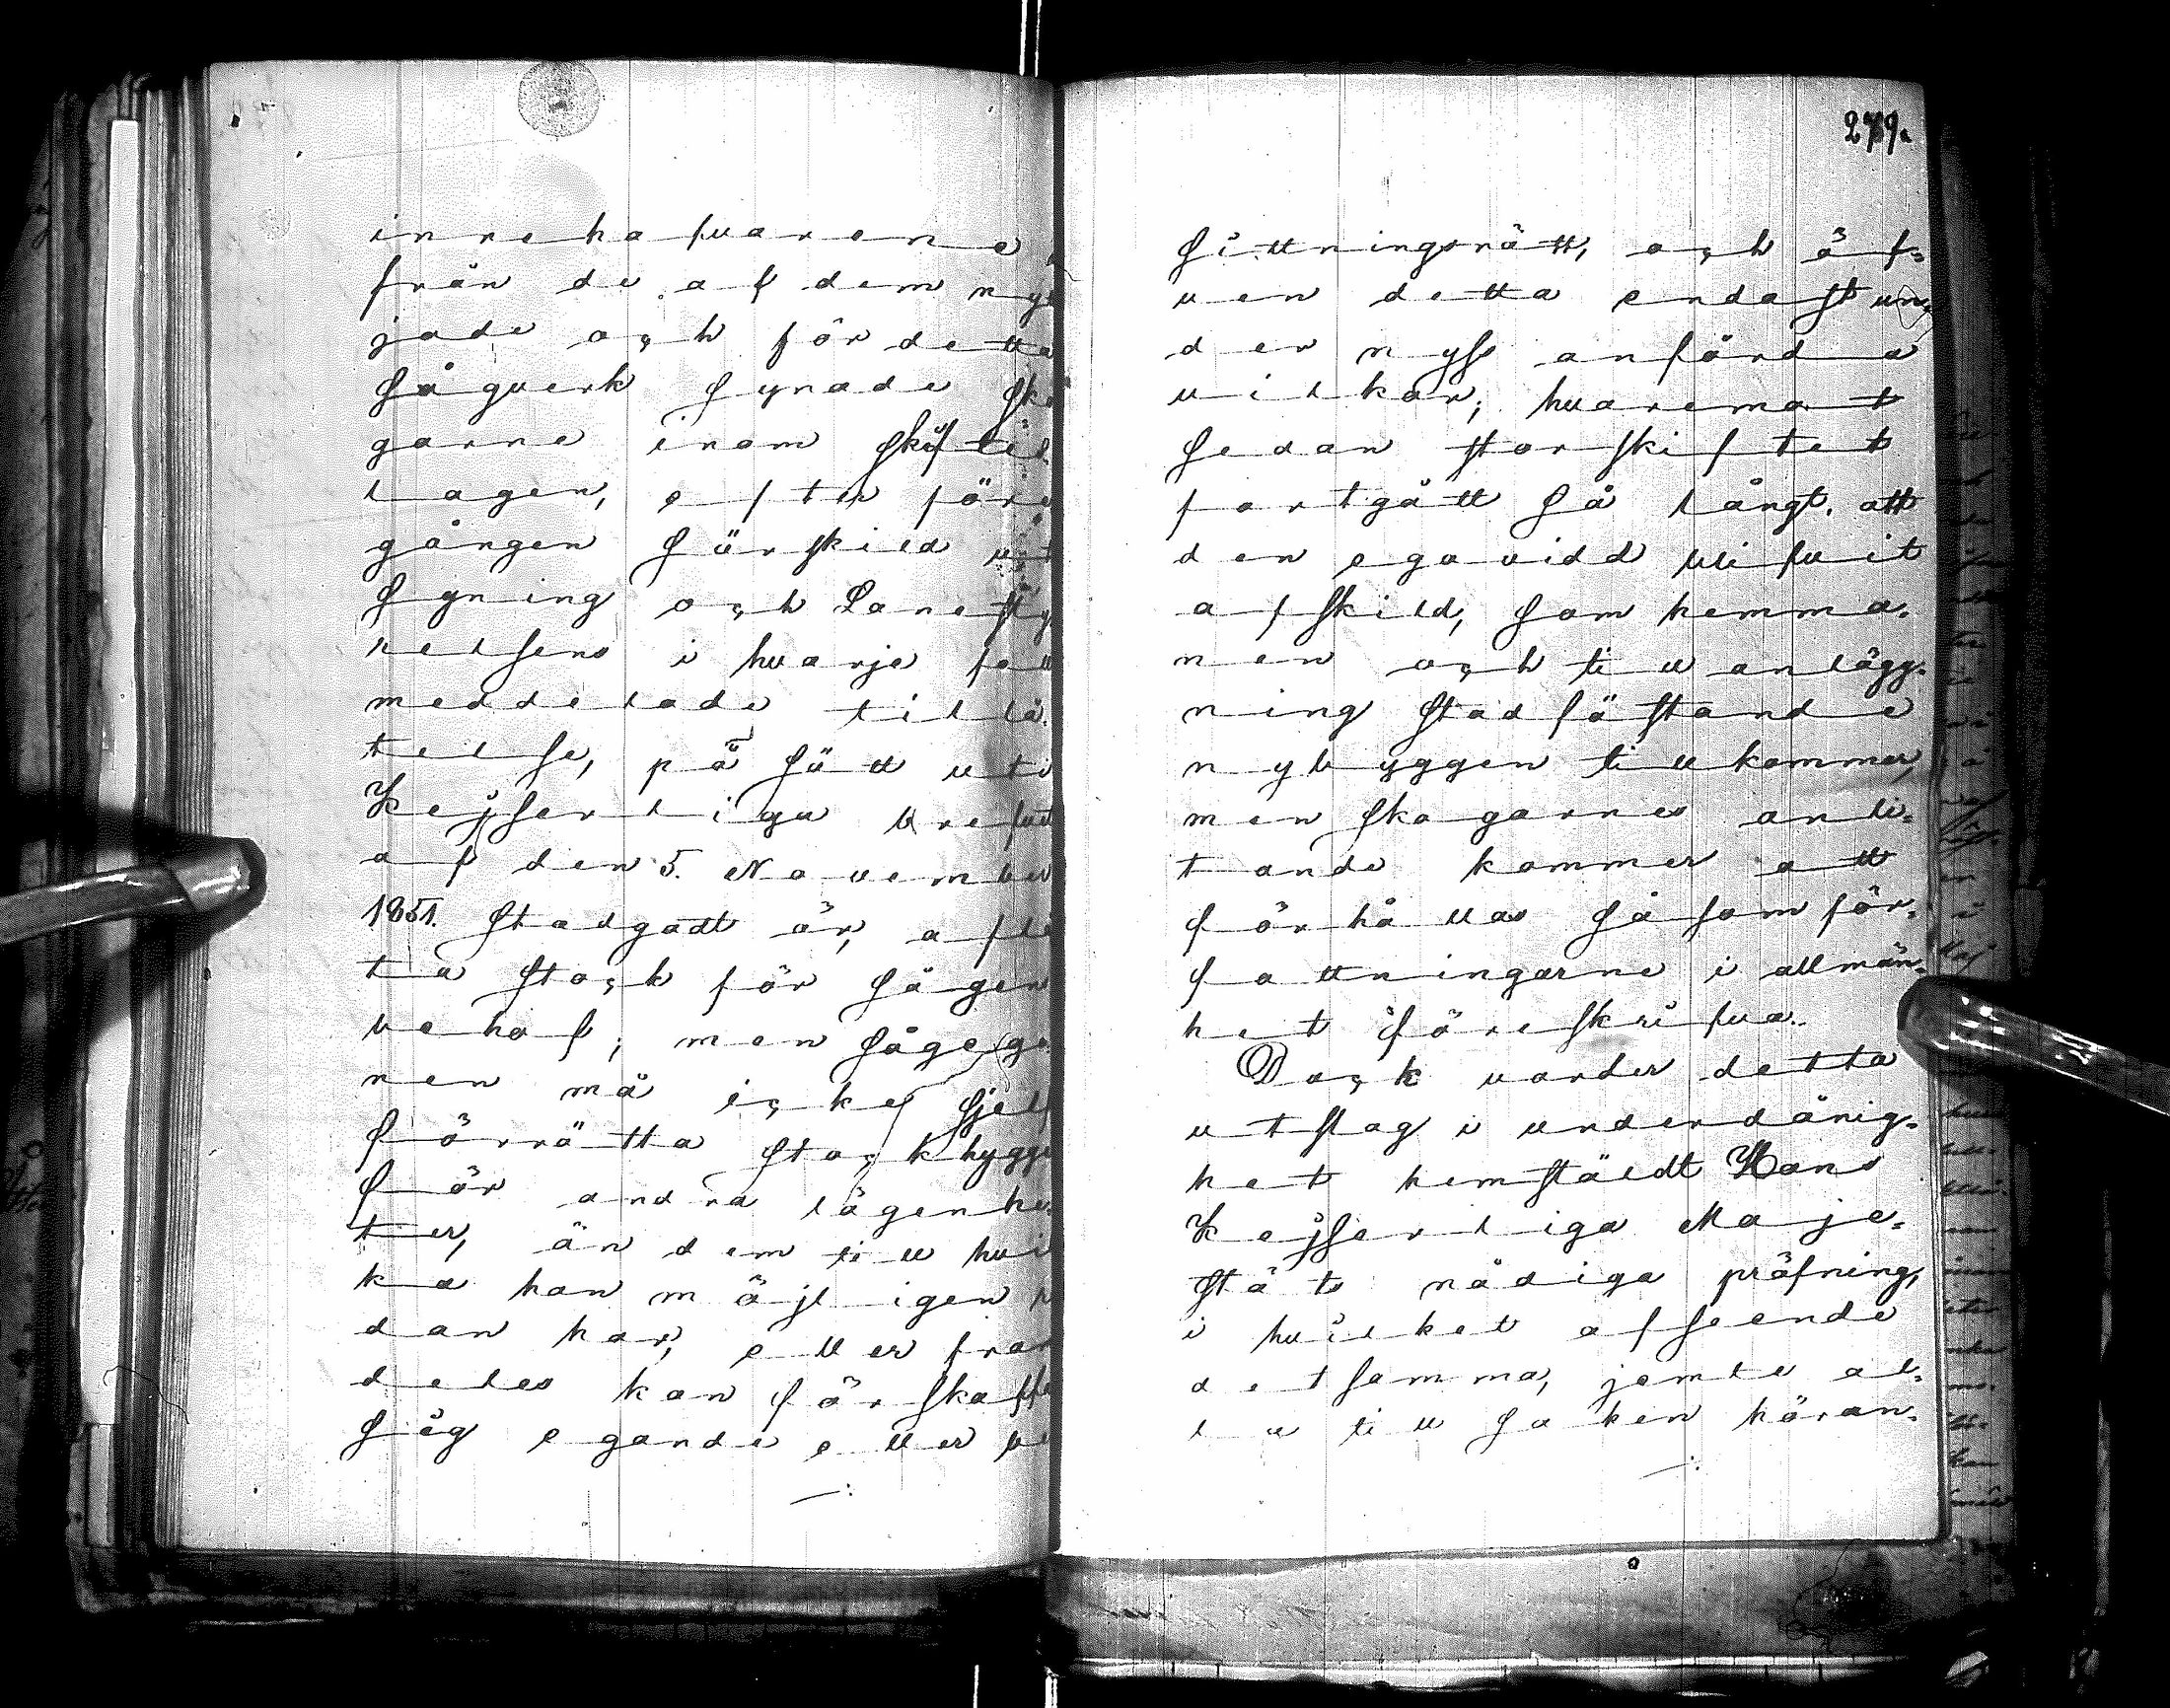 innehafvarene
från de af dem nyt
jade och för detta
sågverk synade sko
garne inom skifts
lagen, efter före
gången särskild ut
syning och Lanesty
relsens i hvarje fall
meddelade tillå
telse, på sätt uti
Kejserliga brefvet
af den 5. November
1851. stadgadt är, afle
ta stock för sågen
behof; men sågega
ren må icke sjelf
förrätta stockhygge
för andra lägenhe
ter, än dem till hvil
ka han möjligen
dan har, eller fram
deles kan förskaffa
sig egande eller be
—:
279.
sittningsrätt, och äf=
ven detta endast un=
der nyss anförda
vilkor; hvaremot
sedan storskiftet
fortgått så långt, att
den egovidd blifvit
afskild, som hemma=
nen och till anlägg=
ning stadfästande
nybyggen tillkommer,
men skogarnes anli=
tande kommer att
förhållas såsom för=
fattningarne i allmän=
het föreskrifva.
Dock varder detta
utslag i underdånig=
het hemstäldt Hans
Kejserliga Maje=
stäts nådiga pröfning,
i hvilket afseende
detsamma, jemte al=
la till saken höran=
—: